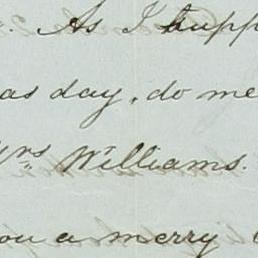 . As I supp
as day, do me
Mrs Williams.
ou a merry